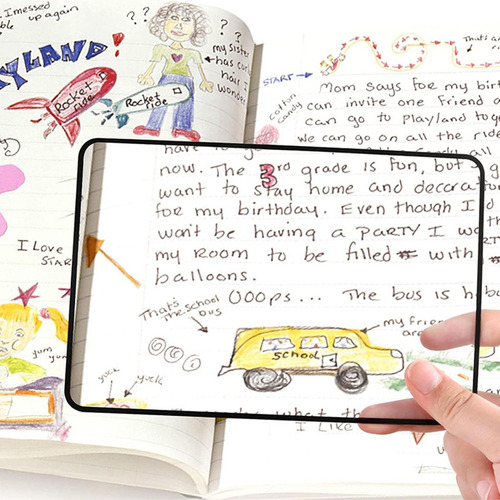 I messed
up again
PLAYLAND!
Rocket
ride
Rocket
ride
? ? ? ?
my sister
has curly
hair =
wonders
I LOVE
STAR
yum
yum
That's an
START →
cotton
candy
Mom says for my birt
can invite one friend o
can go to playland toge
we can go on all the rid
now. The 3rd grade is fun, but
want to stay home and decorat
for my birthday. Even though I d
won't be having a PARTY I wa
my room to be filled with
balloons.
OOOps... The bus is h
That's
the school
bus
my frie
are
SCHOOL
yuck yuck
what th
I like